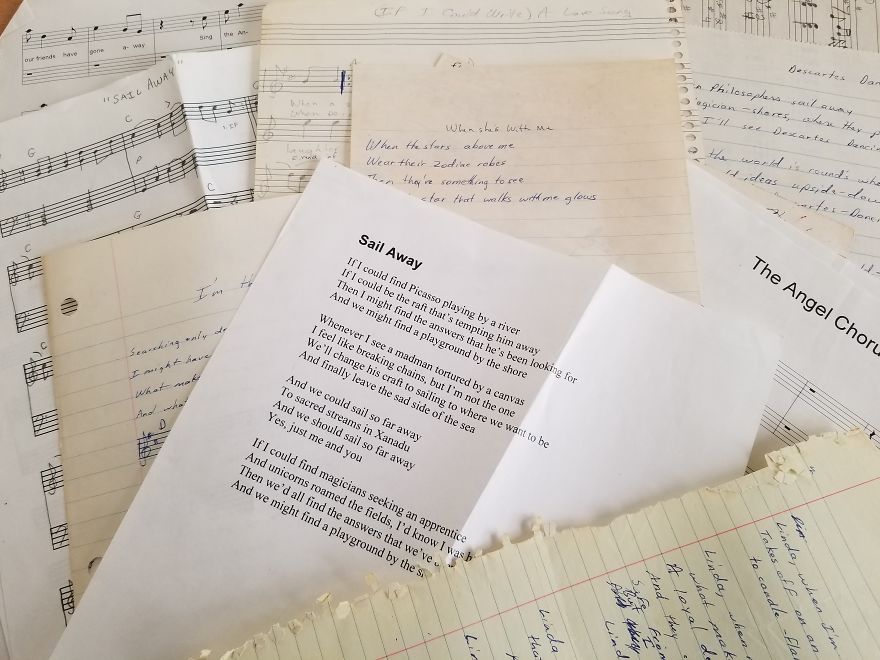 our friends have gone a-way
Sing the An-
(If I Could Write) A Love Song
"SAIL AWAY"
G
C
P
1. If
C
G
C
C
C
When she's With Me
When the stars above me
Wear their Zodiac robes
Then they're something to see
star that walks with me glows
Descartes Dan
Philosophers sail away
magician-shores, where they p
I'll see Descartes Dancin
the world is round's whe
ideas upside-dow
Descartes-Danc
I'm th
Searching only
I might have
What make
And what
D
Sail Away
If I could find Picasso playing by a river
If I could be the raft that's tempting him away
Then I might find the answers that he's been looking for
And we might find a playground by the shore
Whenever I see a madman tortured by a canvas
I feel like breaking chains, but I'm not the one
We'll change his craft to sailing to where we want to be
And finally leave the sad side of the sea
And we could sail so far away
To sacred streams in Xanadu
And we should sail so far away
Yes, just me and you
If I could find magicians seeking an apprentice
And unicorns roamed the fields, I'd know I was h
Then we'd all find the answers that we've
And we might find a playground by the s
The Angel Choru
Linda, when I'm
Takes off on an
to candle fla
Linda, when
what mak
A loyal d
And they
from
I
Linda
Linda
tha
Lin